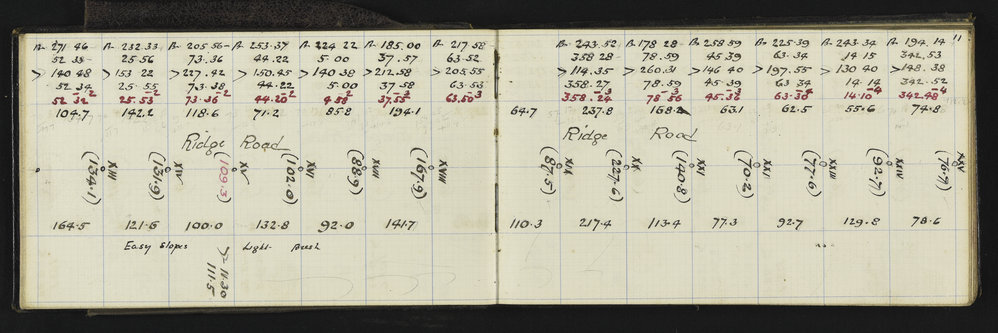 B 271 46 B 232.33 B 205 56 B 253.37 B 224 22 B 185.00 B 217 58
52 35 25.56 73.36 44.22 5.00 37.57 63.52
> 140 48 > 153 22 > 227.42 > 150.45 > 140.38 > 212.58 > 205.55
52 34 25.55 73.38 44.22 5.00 37 58 63.53
52 32 -2 25.53 -2 73.36 -2 44.20 -2 4.58 -2 37.55 -3 63.50 -3
104.7 142.2 118.6 71.2 85.8 194.1
Ridge Road
(134.1) XIII (131.9) XIV (109.3) XV (102.0) XVI (88.9) XVII (167.9) XVIII
164.5 121.5 100.0 132.8 92.0 141.7
Easy Slopes Light Bush
11.30
111.5
11
B 243.52 B 178 28 B 258 59 B 225.39 B 243.34 B 194.14
358 28 78.59 45.39 63.34 14.15 342.53
> 114.35 > 260.31 > 146 40 > 197.55 > 130 40 > 148.38
358.27 78.59 45.39 63 34 14.14 342.52
358.24 -3 78 56 -3 45.36 -3 63.30 -4 14.10 -4 342.48 -4
64.7 237.8 168.2 63.1 62.5 55.6 74.8
Ridge Road
(87.5) XIX (227.6) XX (140.8) XXI (70.2) XXII (77.6) XXIII (92.7) XXIV (76.7) XXV
110.3 217.4 113.4 77.3 92.7 129.8 78.6